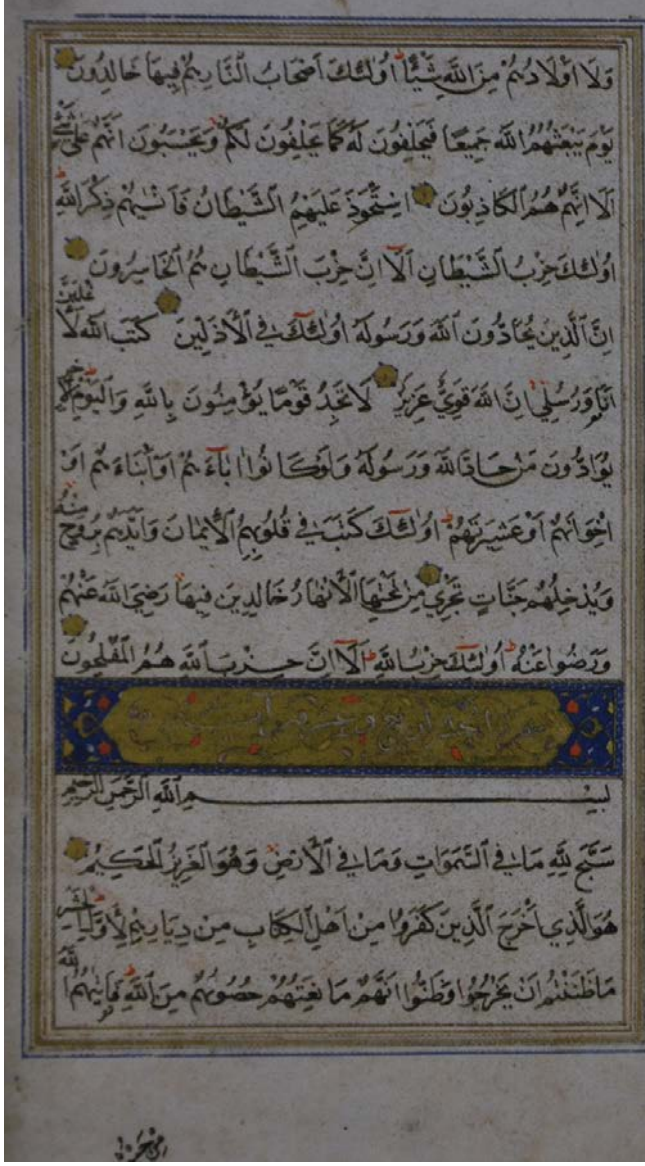 وَلَا اَوْلَادُهُمْ مِنَ اللّٰهِ شَيْئًا اُولٰئِكَ اَصْحَابُ النَّارِ هُمْ فِيهَا خَالِدُونَ
يَوْمَ يَبْعَثُهُمُ اللّٰهُ جَمِيعًا فَيَحْلِفُونَ لَهُ كَمَا يَحْلِفُونَ لَكُمْ وَيَحْسَبُونَ اَنَّهُمْ عَلٰى شَيْءٍ
اَلَا اِنَّهُمْ هُمُ الْكَاذِبُونَ اِسْتَحْوَذَ عَلَيْهِمُ الشَّيْطَانُ فَاَنْسٰيهُمْ ذِكْرَ اللّٰهِ
اُولٰئِكَ حِزْبُ الشَّيْطَانِ اَلَا اِنَّ حِزْبَ الشَّيْطَانِ هُمُ الْخَاسِرُونَ
اِنَّ الَّذِينَ يُحَادُّونَ اللّٰهَ وَرَسُولَهُ اُولٰئِكَ فِي الْاَذَلِّينَ كَتَبَ اللّٰهُ لَاَغْلِبَنَّ
اَنَا وَرُسُلِي اِنَّ اللّٰهَ قَوِيٌّ عَزِيزٌ لَا تَجِدُ قَوْمًا يُؤْمِنُونَ بِاللّٰهِ وَالْيَوْمِ الْاٰخِرِ
يُوَادُّونَ مَنْ حَادَّ اللّٰهَ وَرَسُولَهُ وَلَوْ كَانُوا اٰبَاءَهُمْ اَوْ اَبْنَاءَهُمْ اَوْ
اِخْوَانَهُمْ اَوْ عَشِيرَتَهُمْ اُولٰئِكَ كَتَبَ فِي قُلُوبِهِمُ الْاِيمَانَ وَاَيَّدَهُمْ بِرُوحٍ مِنْهُ
وَيُدْخِلُهُمْ جَنَّاتٍ تَجْرِي مِنْ تَحْتِهَا الْاَنْهَارُ خَالِدِينَ فِيهَا رَضِيَ اللّٰهُ عَنْهُمْ
وَرَضُوا عَنْهُ اُولٰئِكَ حِزْبُ اللّٰهِ اَلَا اِنَّ حِزْبَ اللّٰهِ هُمُ الْمُفْلِحُونَ
بِسْمِ اللّٰهِ الرَّحْمٰنِ الرَّحِيمِ
سَبَّحَ لِلّٰهِ مَا فِي السَّمٰوَاتِ وَمَا فِي الْاَرْضِ وَهُوَ الْعَزِيزُ الْحَكِيمُ
هُوَ الَّذِي اَخْرَجَ الَّذِينَ كَفَرُوا مِنْ اَهْلِ الْكِتَابِ مِنْ دِيَارِهِمْ لِاَوَّلِ الْحَشْرِ
مَا ظَنَنْتُمْ اَنْ يَخْرُجُوا وَظَنُّوا اَنَّهُمْ مَانِعَتُهُمْ حُصُونُهُمْ مِنَ اللّٰهِ فَاَتٰيهُمُ اللّٰهُ